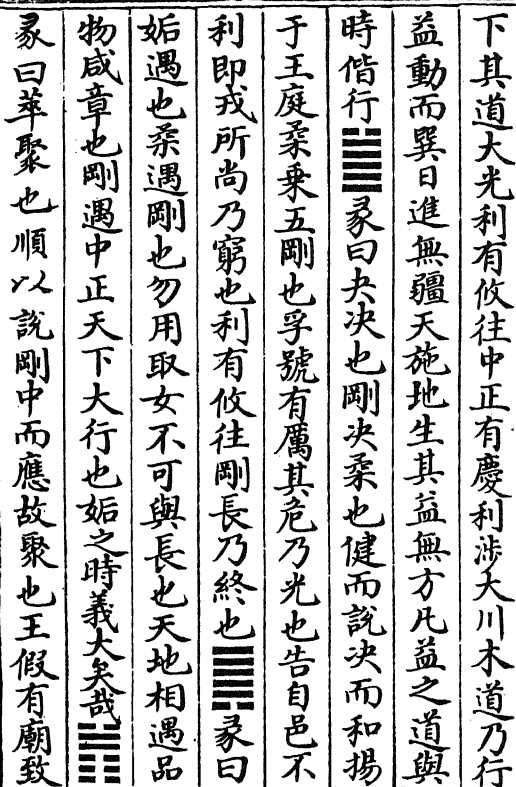 下其道大光利有攸往中正有慶利涉大川木道乃行
益動而巽日進無疆天施地生其益無方凡益之道與
時偕行䷪彖曰夬决也剛决柔也健而說决而和揚
于王庭柔乗五剛也孚號有厲其危乃光也告自邑不
利即戎所尚乃窮也利有攸往剛長乃終也䷫彖曰
姤遇也柔遇剛也勿用取女不可與長也天地相遇品
物咸章也剛遇中正天下大行也姤之時義大矣哉䷬
彖曰萃聚也順以說剛中而應故聚也王假有廟致